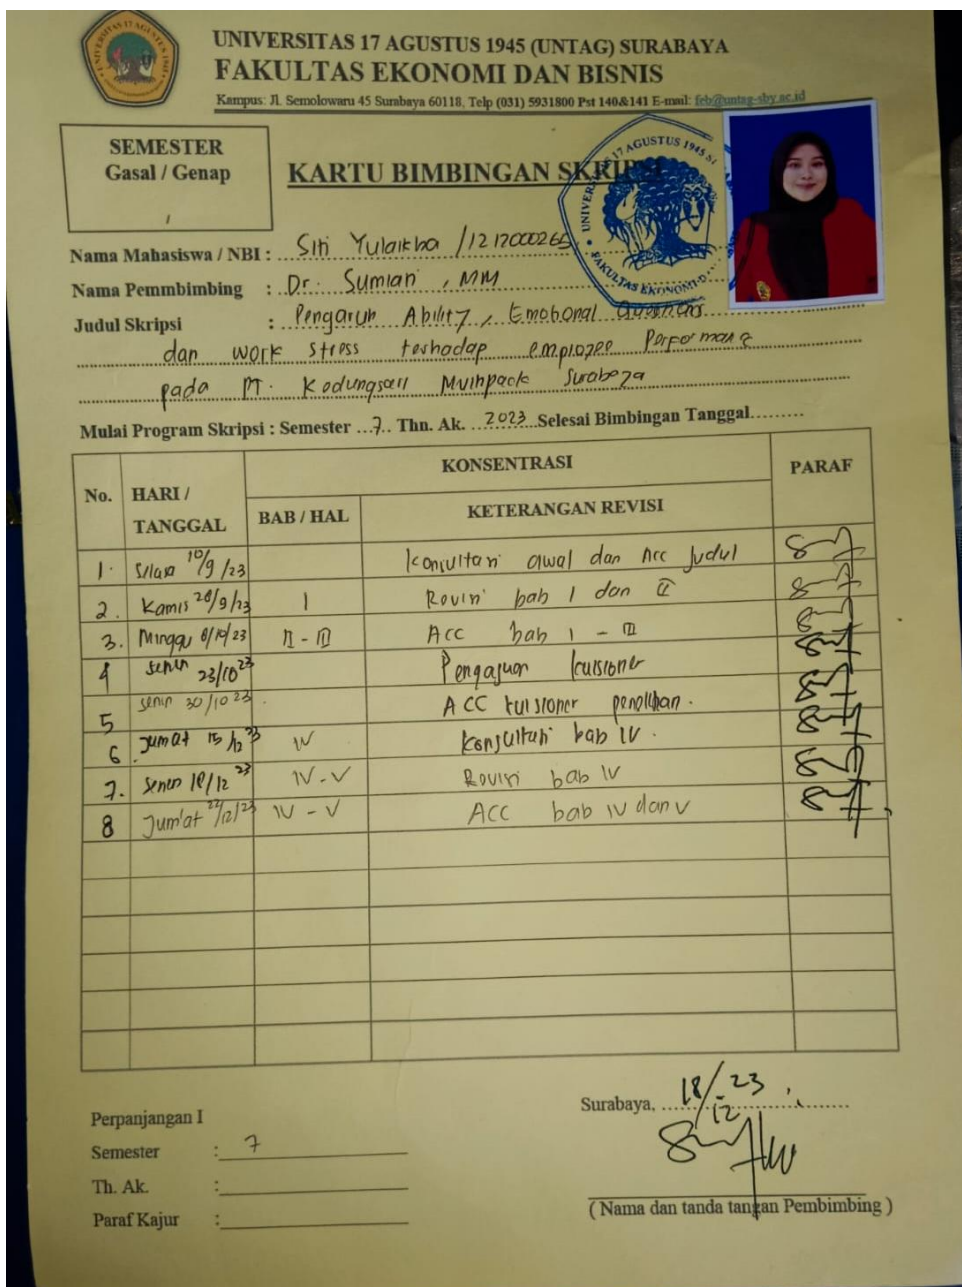 UNIVERSITAS 17 AGUSTUS 1945 (UNTAG) SURABAYA
FAKULTAS EKONOMI DAN BISNIS
Kampus: Jl. Semolowaru 45 Surabaya 60118, Telp (031) 5931800 Pst 140&141 E-mail: feb@untag-sby.ac.id
SEMESTER
Gasal / Genap
/
KARTU BIMBINGAN SKRIPSI
UNIVERSITAS 17 AGUSTUS 1945
FAKULTAS EKONOMI
Nama Mahasiswa / NBI : Siti Yulaikha / 1212000265
Nama Pemmbimbing : Dr. Sumiati, MM
Judul Skripsi : Pengaruh Ability, Emotional
dan work stress terhadap employee Performance
pada PT. Kedungsari Mulnpack Surabaya
Mulai Program Skripsi : Semester 7 Thn. Ak. 2023 Selesai Bimbingan Tanggal
No. HARI / TANGGAL KONSENTRASI PARAF
BAB / HAL KETERANGAN REVISI
1. Selasa 10/9/23 Konsultasi awal dan Acc Judul
2. Kamis 28/9/23 I Revisi bab I dan II
3. Minggu 8/10/23 II - III Acc bab I - III
4 senin 23/10 23 Pengajuan kuisioner
5 senin 30/10 23 ACC kuisioner penelitian.
6. Jumat 15/12 23 IV Konsultasi bab IV.
7. Senen 18/12 23 IV - V Revisi bab IV
8 Jum'at 22/12/23 IV - V ACC bab IV dan V
Perpanjangan I
Semester : 7
Th. Ak. :
Paraf Kajur :
Surabaya, 18/12 23
( Nama dan tanda tangan Pembimbing )